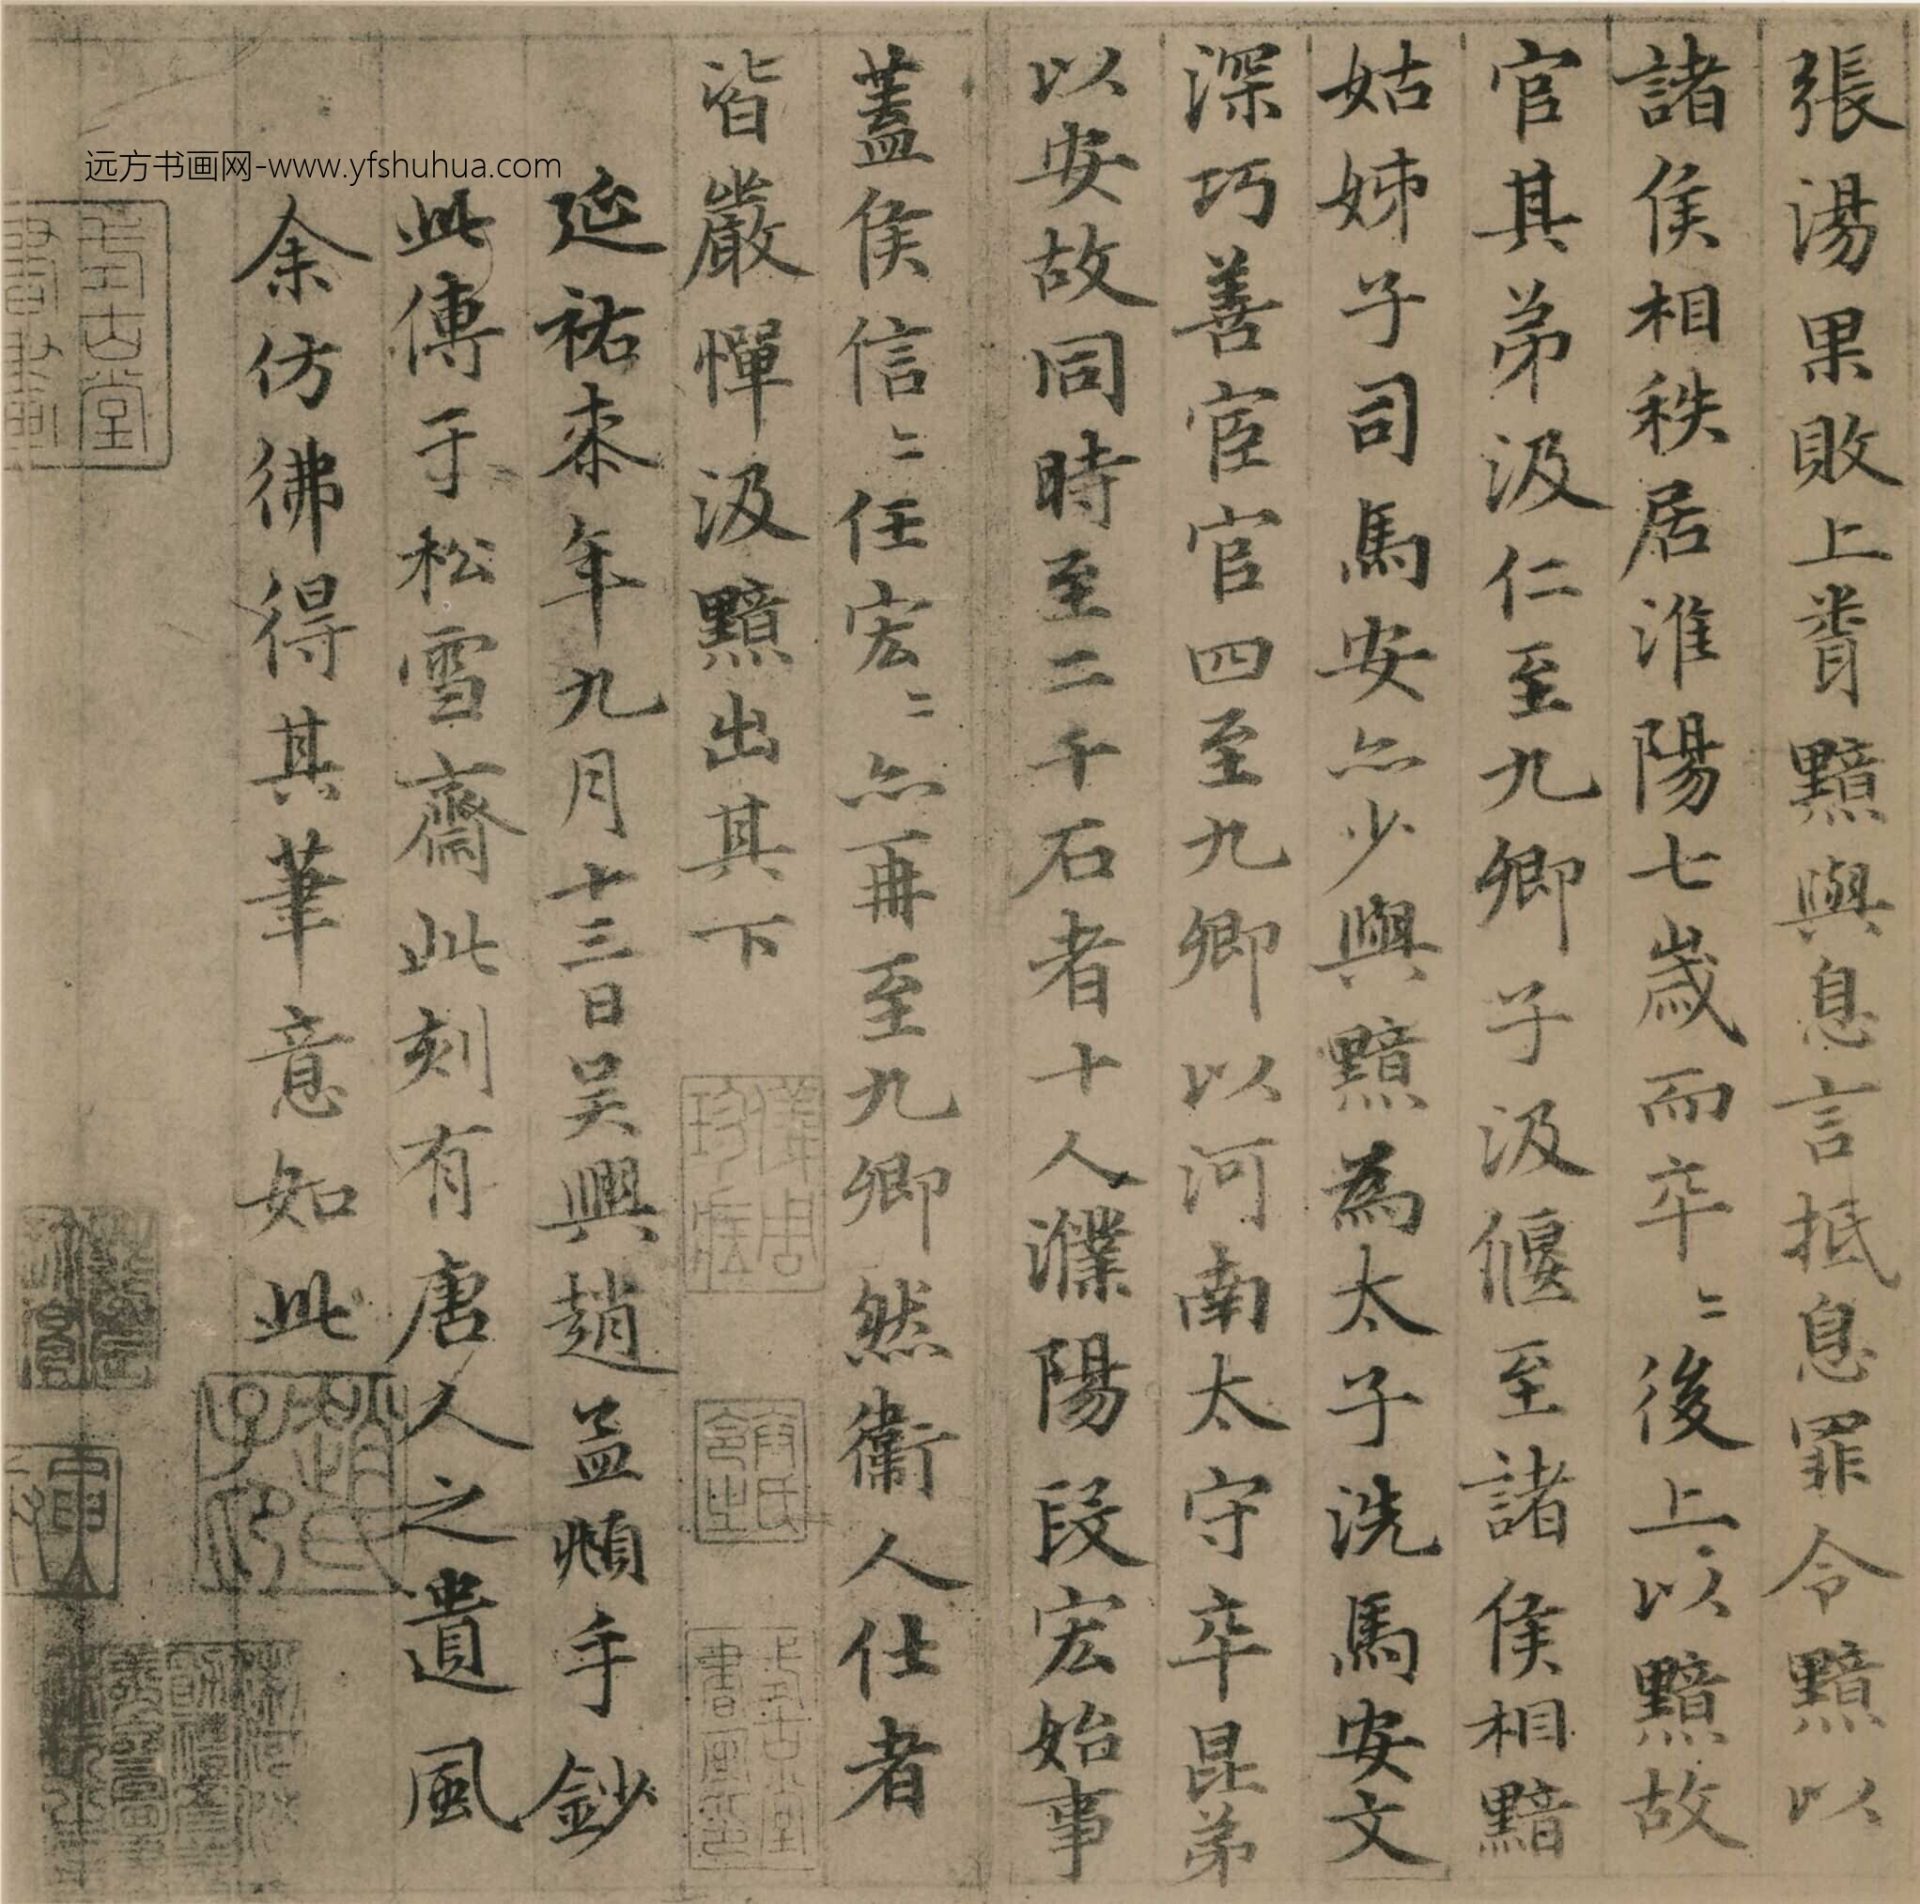 張湯果敗上聞黯與息言抵息罪令黯以
諸侯相秩居淮陽七歲而卒〻後上以黯故
官其弟汲仁至九卿子汲偃至諸侯相黯
姑姊子司馬安亦少與黯為太子洗馬安文
深巧善宦官四至九卿以河南太守卒昆弟
以安故同時至二千石者十人濮陽段宏始事
蓋侯信〻任宏〻亦再至九卿然衞人仕者
皆嚴憚汲黯出其下
延祐柒年九月十三日吳興趙孟頫手鈔
此傳于松雪齋此刻有唐人之遺風
余仿彿得其筆意如此
远方书画网-www.yfshuhua.com
趙氏子昂